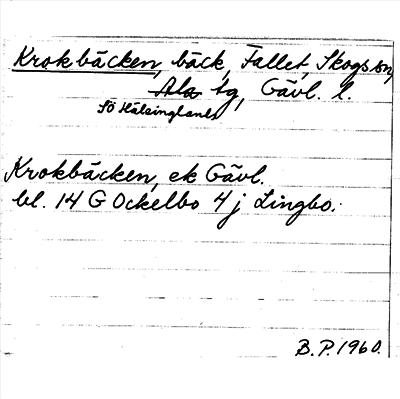 Krokbäcken, bäck, Fallet, Skogs sn,
Ala tg, Gävl. l.
Sö Hälsinglands
Krokbäcken, ek Gävl.
bl. 14 G Ockelbo 4 j Lingbo.
B.P. 1960.